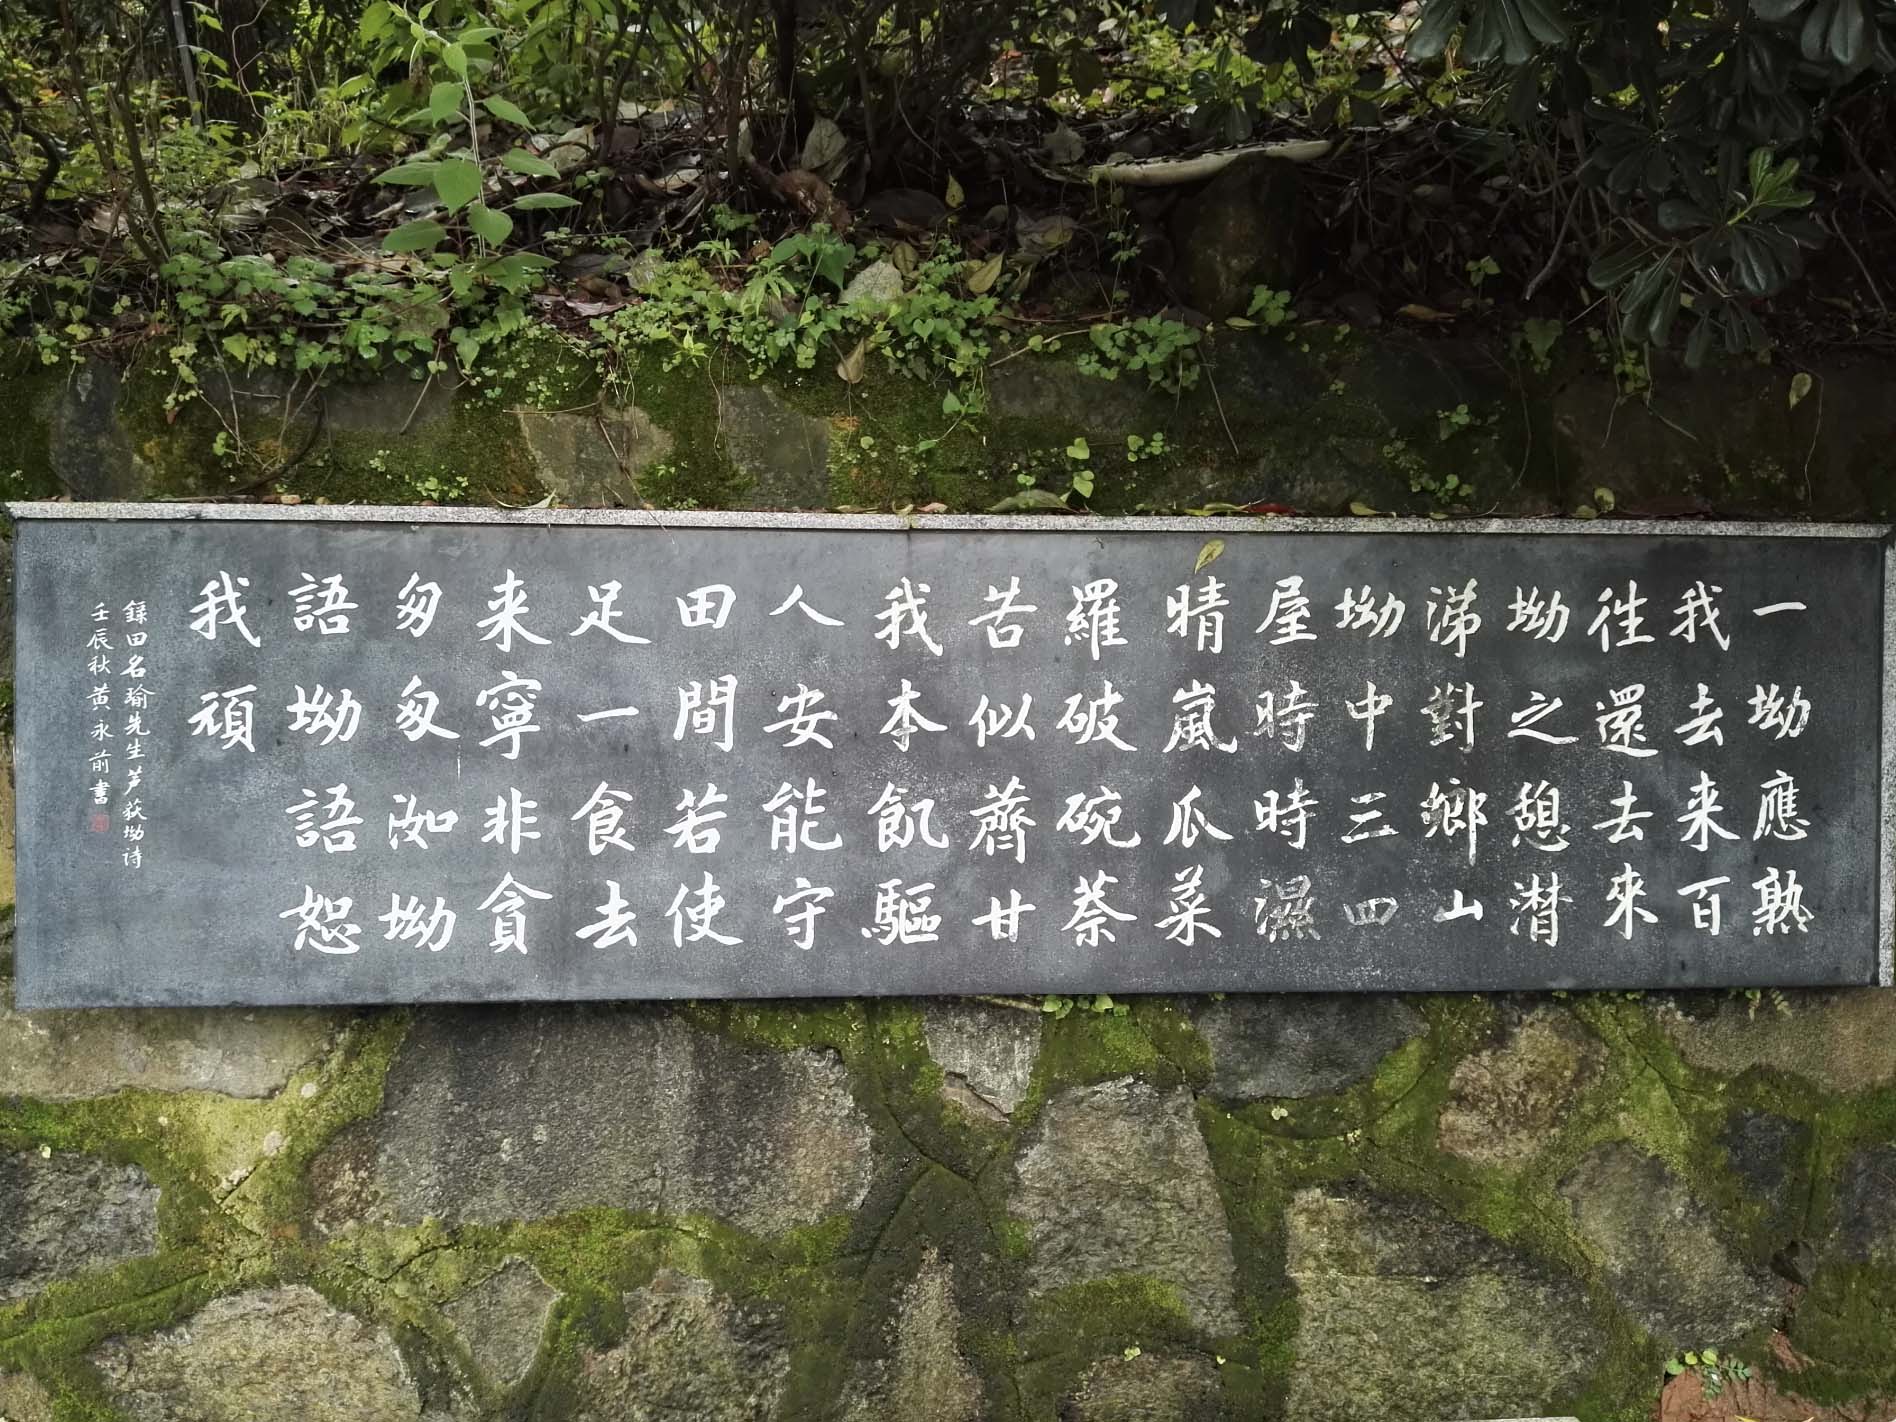 一坳應熟
我去来百
徃還去來
坳之憩潸
涕對鄉山
坳中三四
屋時時濕
晴嵐瓜菜
羅破碗萘
苦似薺甘
我本飢驅
人安能守
田間若使
足一食去
来寧非貪
匆匆洳坳
語坳語恕
我頑
錄田名瑜先生芦荻坳诗
壬辰秋黄永前書